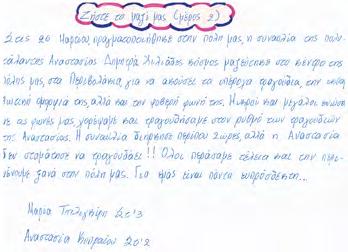 Ζήστε το μαζί μας (μέρος 2)
Στις 20 Μαρτίου, πραγματοποιήθηκε στην πόλη μας, η συναυλία της πολυ-
τάλαντης Αναστασίας Δημητρά. Χιλιάδες κόσμος μαζεύτηκε στο κέντρο της
πόλης μας, στα Περιβολάκια, για να ακούσει τα υπέροχα τραγούδια, την
φιγούρα της αλλά και την φοβερή φωνή της. Μικροί και μεγάλοι ένωσα-
με τις φωνές μας, χορέψαμε και τραγουδήσαμε στον ρυθμό των τραγουδιών
της Αναστασίας. Η συναυλία διήρκησε περίπου 2 ώρες, αλλά η Αναστασία
δεν σταμάτησε να τραγουδάει!! Όλοι περάσαμε τέλεια και την περι-
μένουμε ξανά στην πόλη μας. Για εμάς είναι πάντα ευπρόσδεκτη...
Μαρία Στ2'3
Αναστασία Κυπραίου Στ2'2